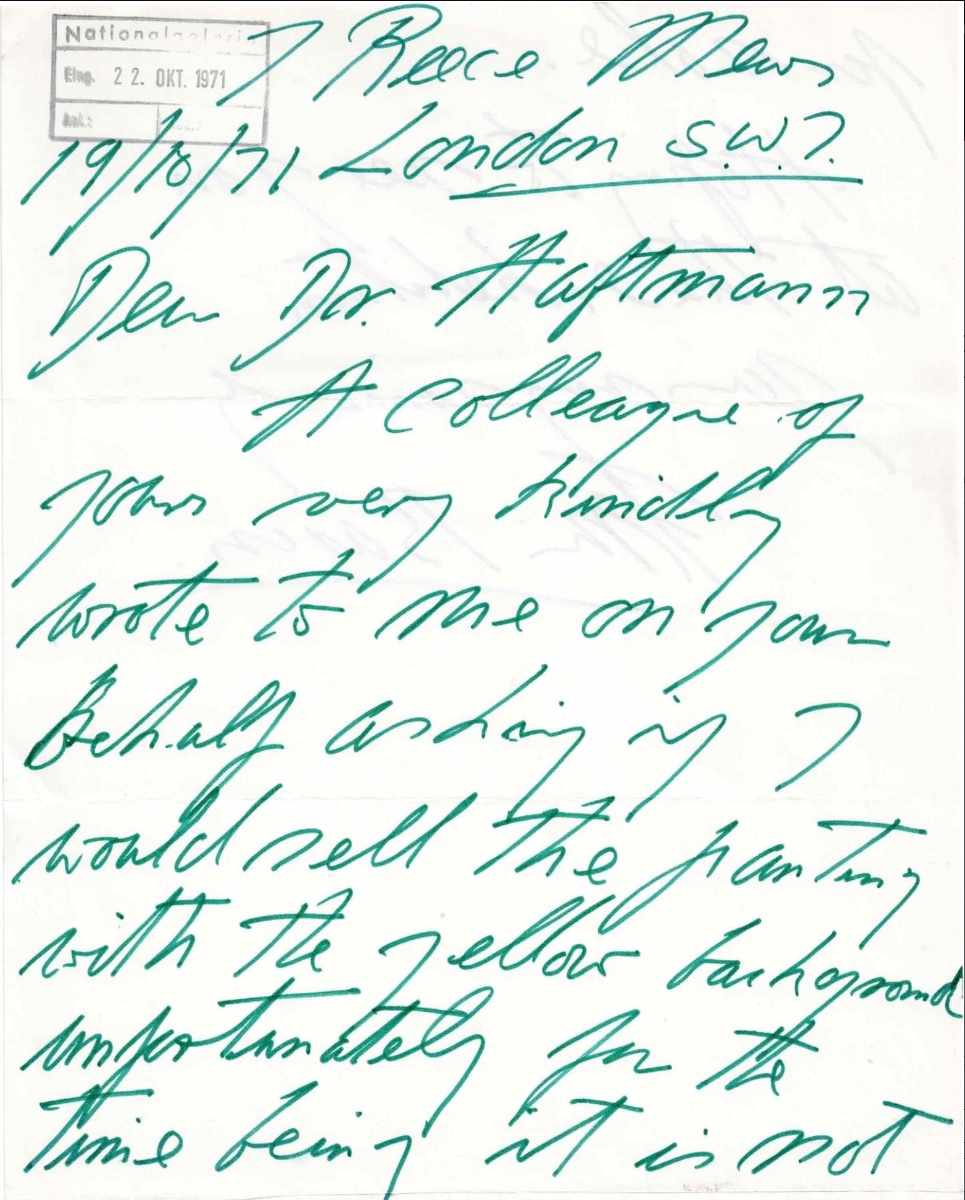 Nationalgalerie
Eing. 22. OKT. 1971
Anl.:
7 Reece Mews
19/10/71 London S.W.7.
Dear Dr. Haftmann
A colleague of
yours very kindly
wrote to me on your
behalf asking if I
would sell the painting
with the yellow background
unfortunately for the
time being it is not